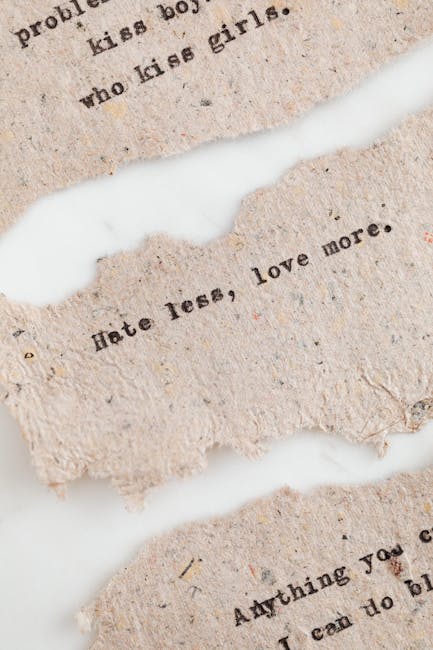 kiss
who kiss girls.
Hate less, love more.
Anything you
I can do